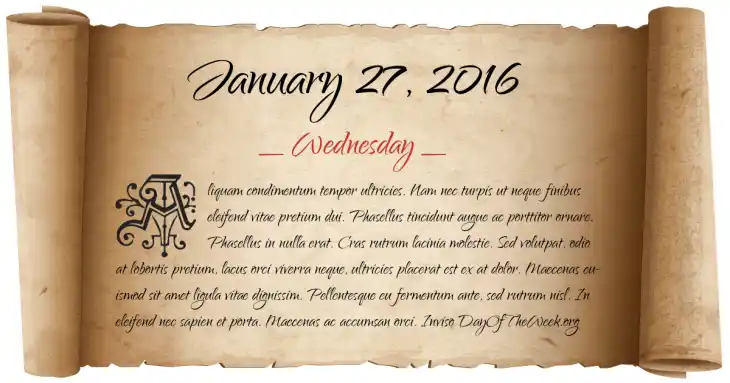 January 27, 2016
— Wednesday —
Aliquam condimentum tempor ultricies. Nam nec turpis ut neque finibus
eleifend vitae pretium dui. Phasellus tincidunt augue ac porttitor ornare.
Phasellus in nulla erat. Cras rutrum lacinia molestie. Sed volutpat, odio
at lobortis pretium, lacus orci viverra neque, ultricies placerat est ex at dolor. Maecenas eu-
ismod sit amet ligula vitae dignissim. Pellentesque eu fermentum ante, sed rutrum nisl. In
eleifend nec sapien et porta. Maecenas ac accumsan orci. Inviso DayOfTheWeek.org